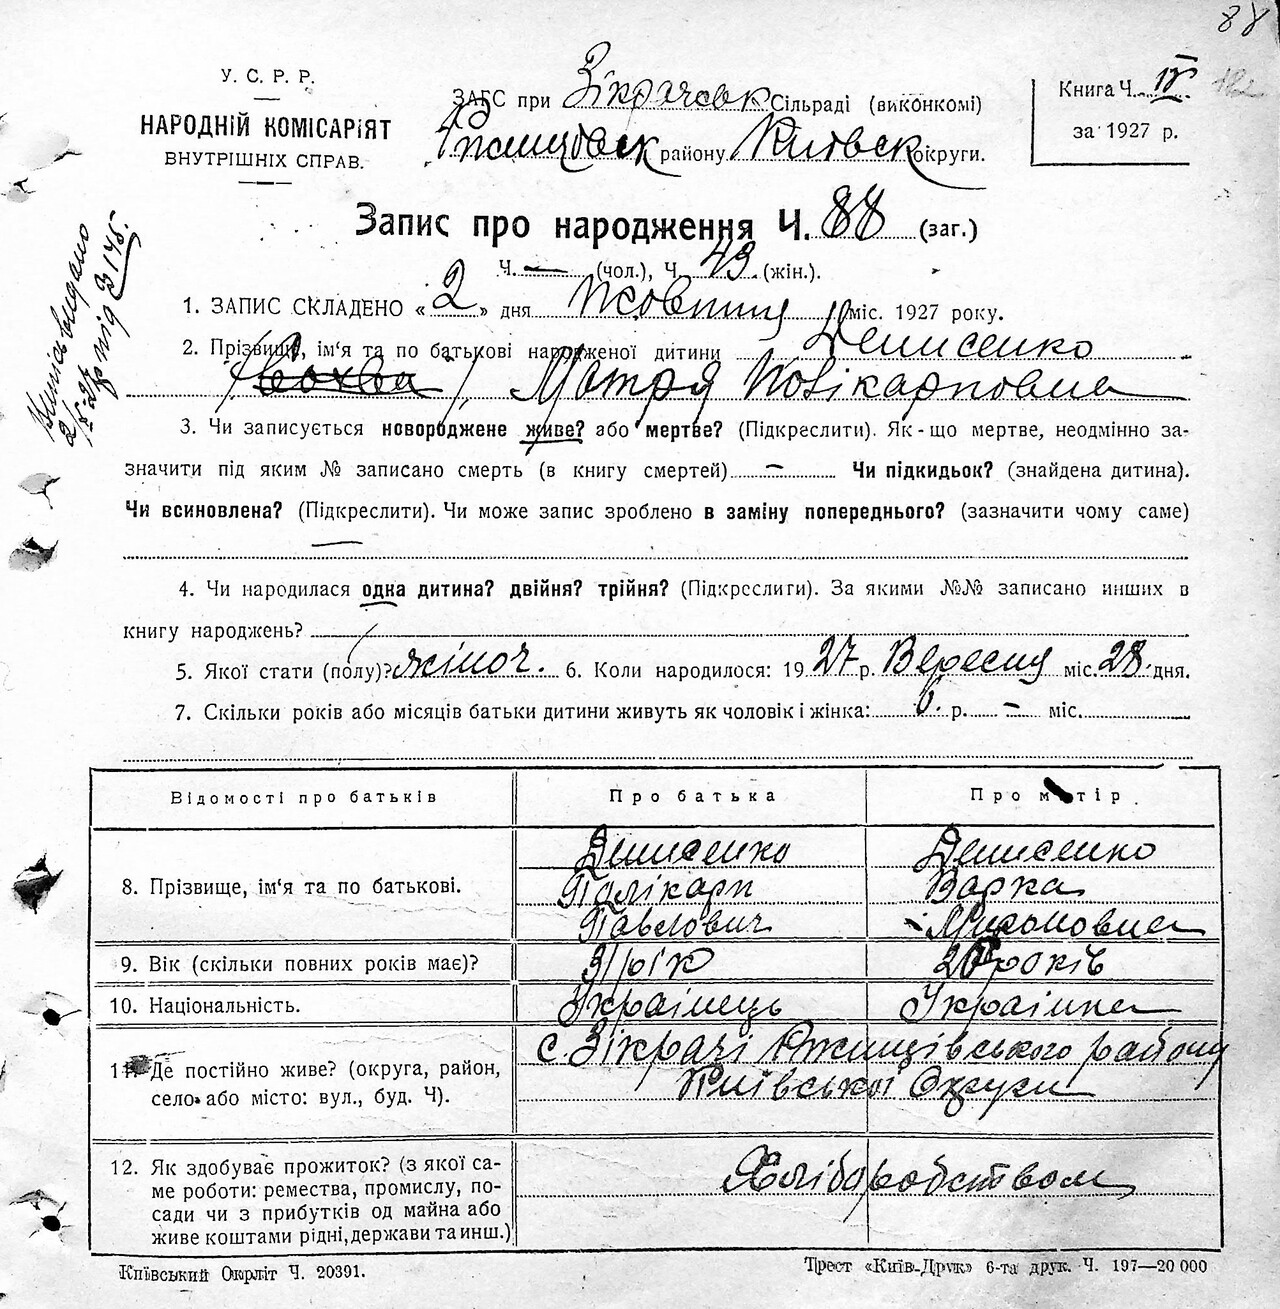 88
У. С. Р. Р.
НАРОДНІЙ КОМІСАРІЯТ
ВНУТРІШНІХ СПРАВ.
ЗАГС при Зікрачевск Сільраді (виконкомі)
Ржищевск району Київск округи.
Книга Ч. IV
за 1927 р.
Запис про народження Ч. 88 (заг.)
Ч. — (чол.), Ч. 43 (жін.).
1. ЗАПИС СКЛАДЕНО « 2 » дня Жовтня міс. 1927 року.
2. Прізвище, ім'я та по батькові народженої дитини Денисенко
Мотря Полікарповна
3. Чи записується новороджене живе? або мертве? (Підкреслити). Як-що мертве, неодмінно за-
значити під яким № записано смерть (в книгу смертей) — Чи підкидьок? (знайдена дитина).
Чи всиновлена? (Підкреслити). Чи може запис зроблено в заміну попереднього? (зазначити чому саме)
—
4. Чи народилася одна дитина? двійня? трійня? (Підкреслити). За якими №№ записано инших в
книгу народжень?
5. Якої стати (полу)? жіноч. 6. Коли народилося: 1927 р. Вересня міс. 28 дня.
7. Скільки років або місяців батьки дитини живуть як чоловік і жінка: 6. р. — міс.
Відомості про батьків Про батька Про матір
8. Прізвище, ім'я та по батькові.
Денисенко Денисенко
Палікарп Варка
Павлович Мироновна
9. Вік (скільки повних років має)? 31 рік років
10. Національність. Українець Українка
11. Де постійно живе? (округа, район,
село або місто: вул., буд. Ч).
с. Зікрачі Ржищівського району
Київської Округи
12. Як здобуває прожиток? (з якої са-
ме роботи: ремества, промислу, по-
сади чи з прибутків од майна або
живе коштами рідні, держави та инш.)
Хліборобством
Київський Окрліт Ч. 20391.
Трест «Київ-Друк» 6-та друк. Ч. 197—20 000